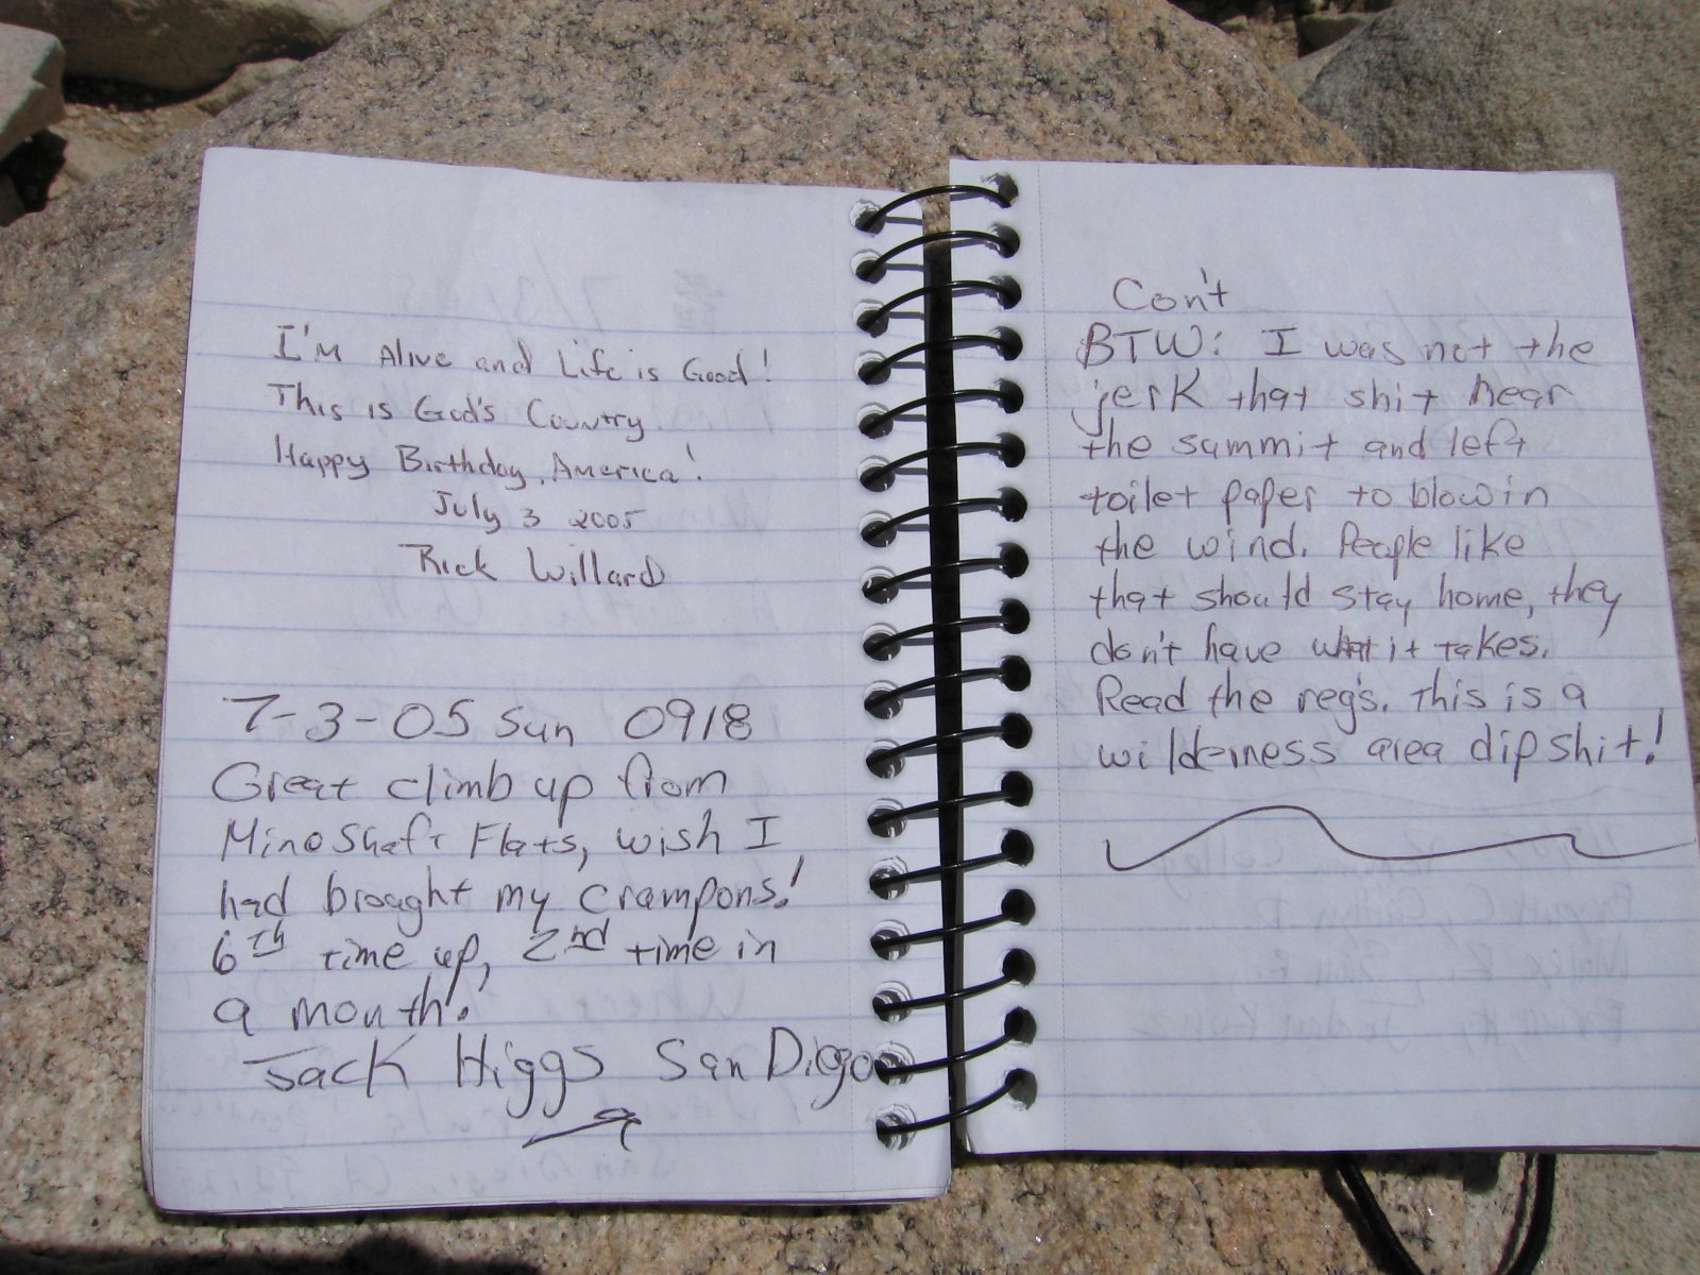 I'm Alive and Life is Good!
This is God's Country.
Happy Birthday, America!
July 3 2005
Rick Willard
7-3-05 Sun 0918
Great climb up from
Mine Shaft Flats, wish I
had brought my crampons!
6th time up, 2nd time in
a month!
Jack Higgs San Diego
Con't
BTW: I was not the
jerk that shit near
the summit and left
toilet paper to blow in
the wind. People like
that should stay home, they
don't have what it takes.
Read the reg's. This is a
wilderness area dipshit!